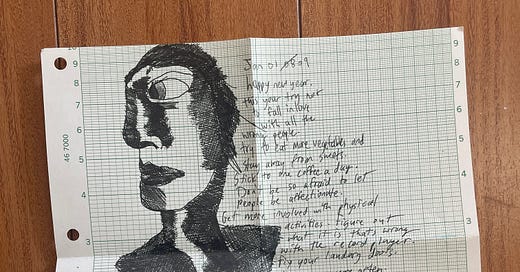 Jan 01 09
happy new year.
this year try not
to fall in love
with all the
wrong people
try to eat more vegetables and
stay away from sweets.
stick to one coffee a day.
Don't be so afraid to let
people be affectionate.
Get more involved with physical
activities figure out
what it is thats wrong
with the record player.
try your laundry
more often
46 7000
9
8
7
6
5
4
3
9
8
7
6
5
4
3